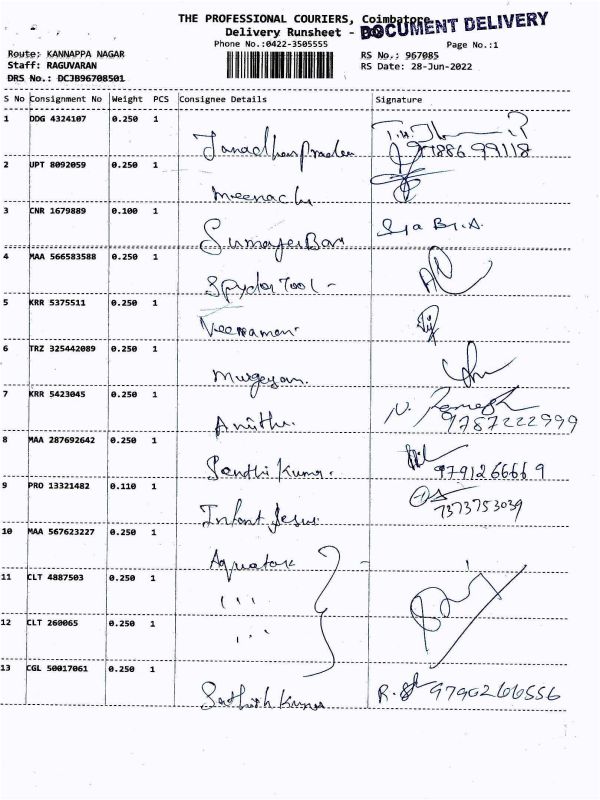 THE PROFESSIONAL COURIERS, Coimbatore
Delivery Runsheet -
DOCUMENT DELIVERY
Phone No.:0422-3505555
Page No.:1
Route: KANNAPPA NAGAR
RS No.: 967085
Staff: RAGUVARAN
RS Date: 28-Jun-2022
DRS No.: DCJB96708501
S No Consignment No Weight PCS Consignee Details Signature
1 DDG 4324107 0.250 1
2 UPT 8092059 0.250 1
Meenachi
3 CNR 1679889 0.100 1
4 MAA 566583588 0.250 1
Spyder Tool -
5 KRR 5375511 0.250 1
Veeramani
6 TRZ 325442089 0.250 1
Murgesan.
7 KRR 5423045 0.250 1
N. Ramesh
Anitha. 9787222999
8 MAA 287692642 0.250 1
Senthil Kumar. 9791266669
9 PRO 13321482 0.110 1
Infant Jesus. 7373753039
10 MAA 567623227 0.250 1
Aquatak
11 CLT 4887503 0.250 1
12 CLT 260065 0.250 1
13 CGL 50017061 0.250 1
Sathish Kumar 9790266556